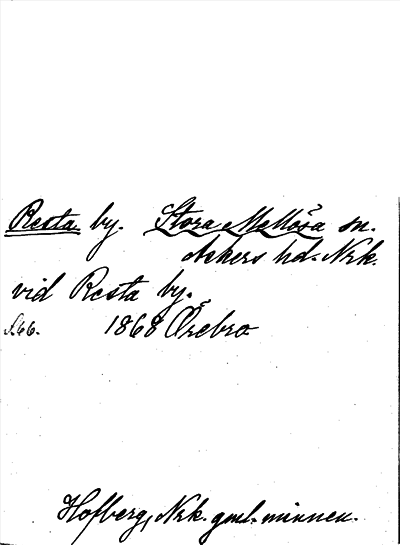 Resta. by. Stora Mellösa sn.
Askers hd. Nrk.
vid Resta by.
S.66. 1868 Örebro
Hofberg, Nrk. gml. minnen.